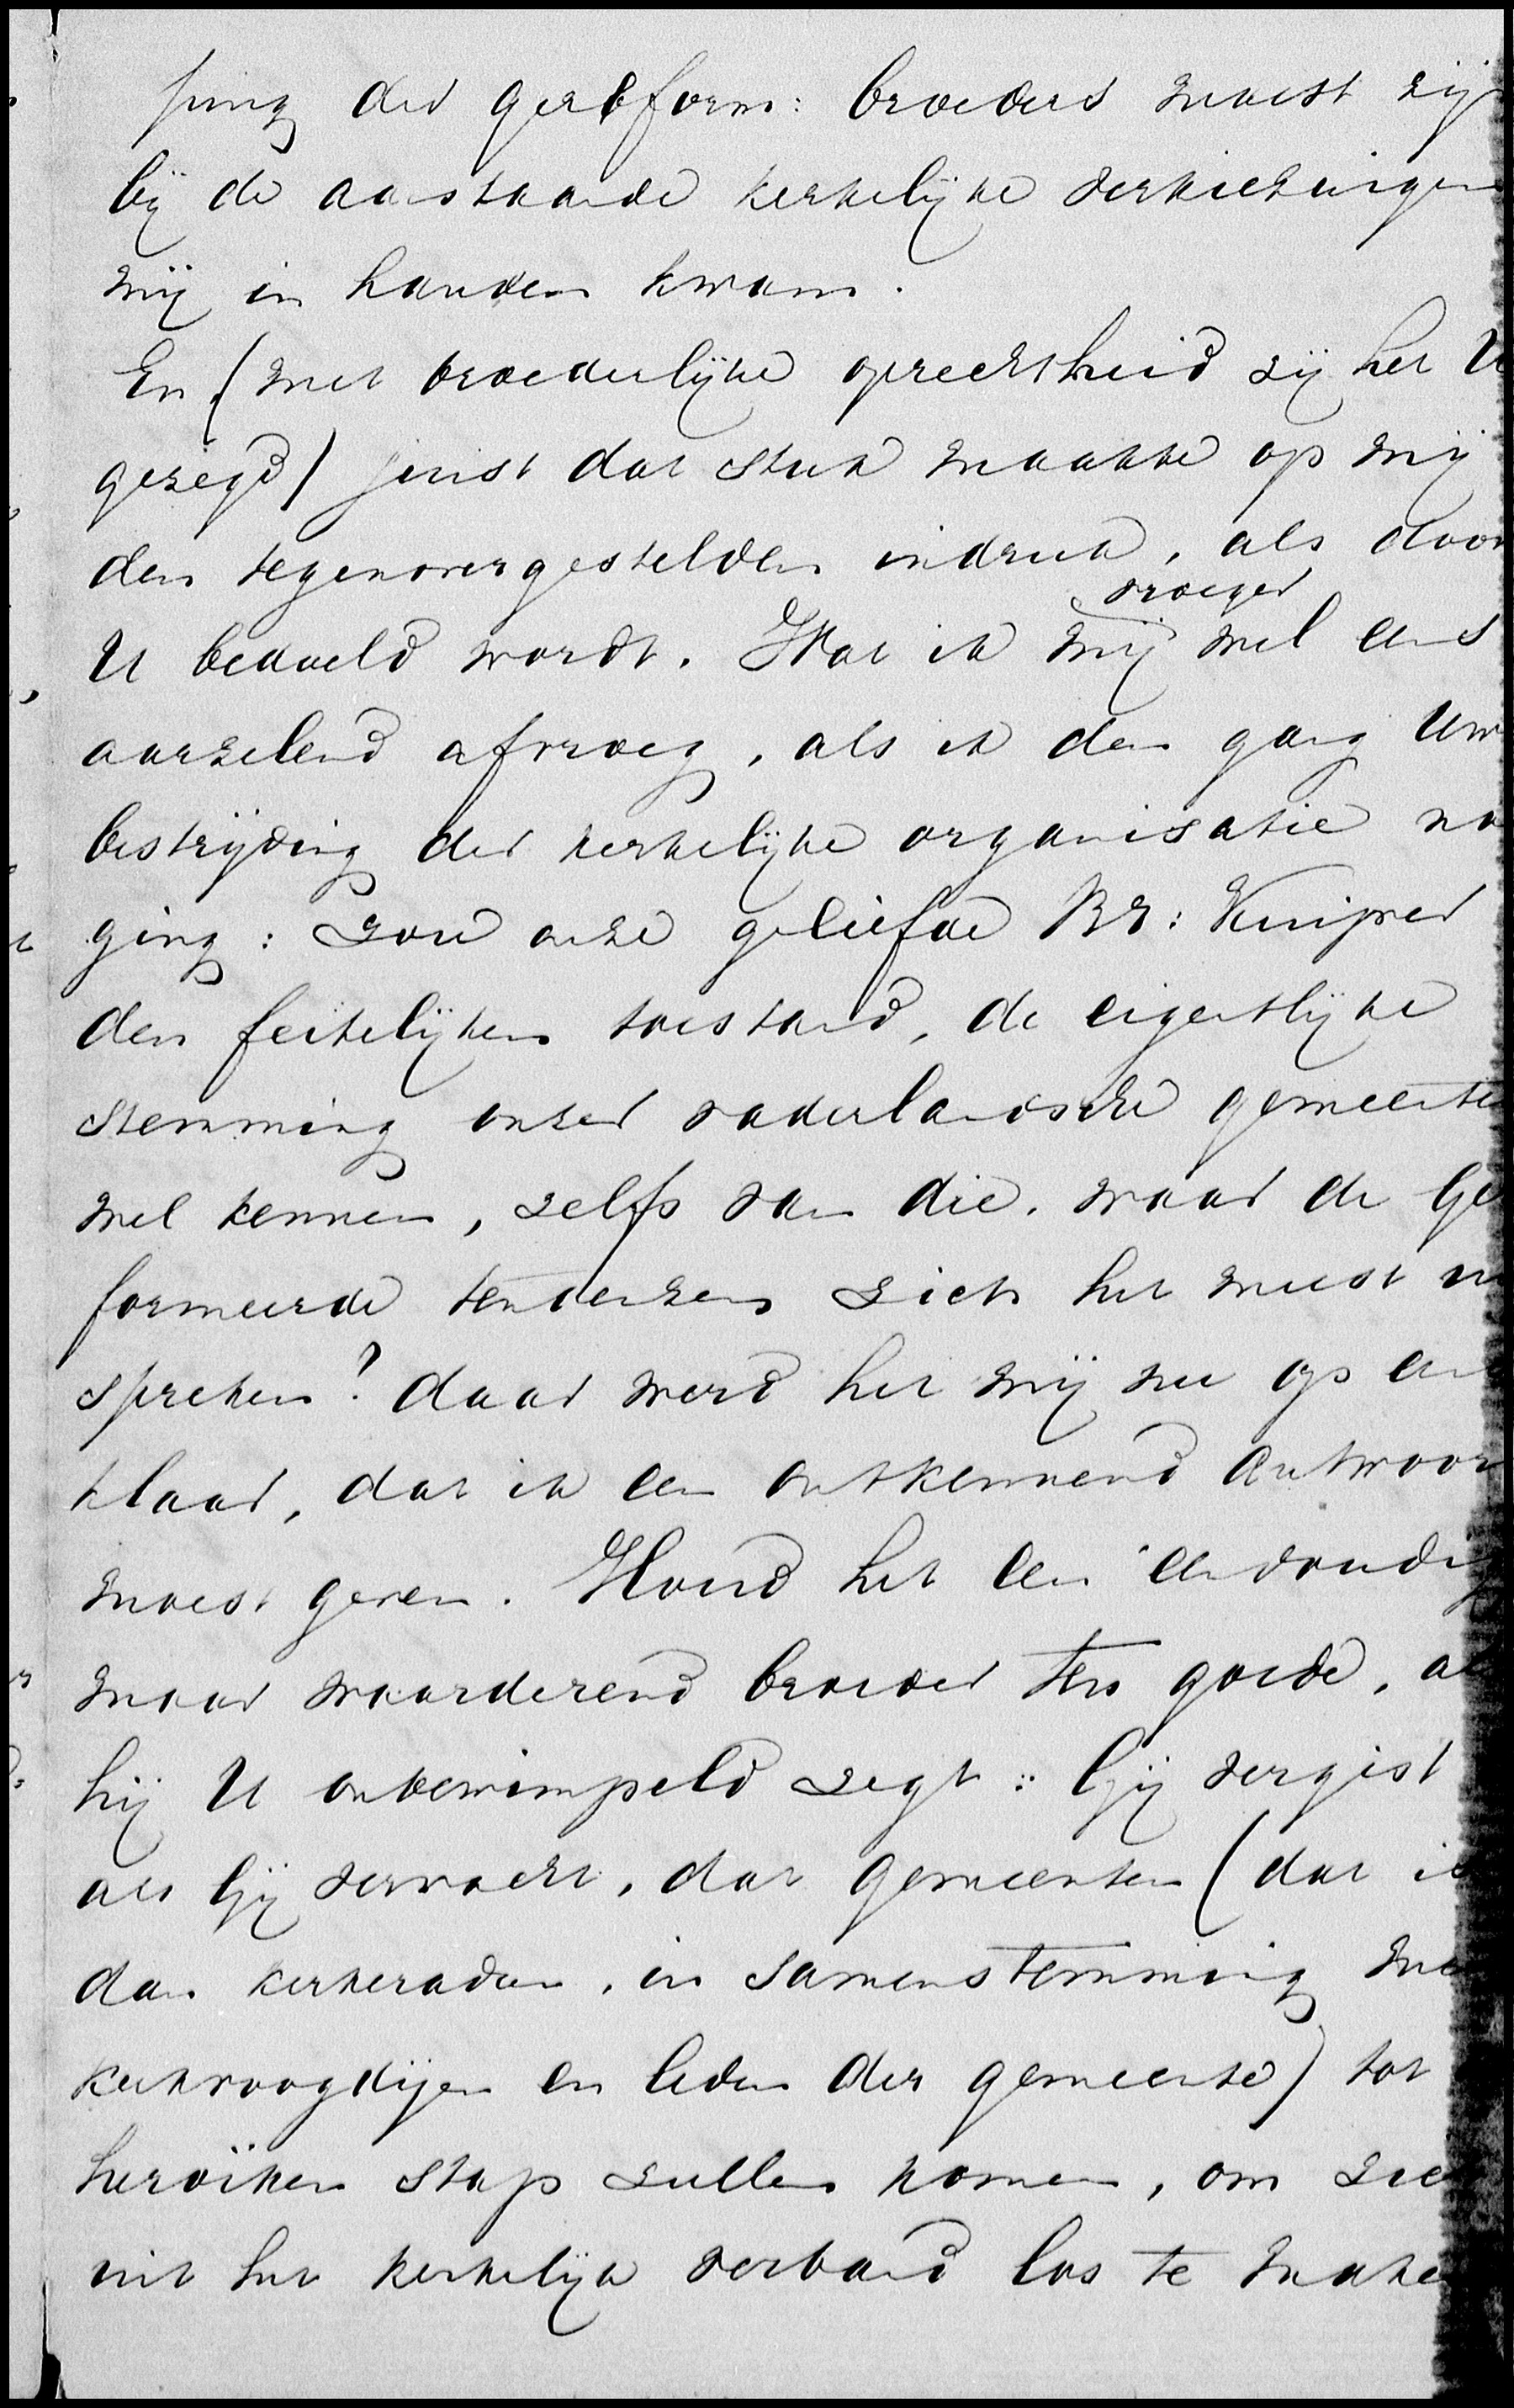 sing der gereform: broeders moest zij
bij de aanstaande kerkelijke verkiezingen
mij in handen kwam.
En (met broederlijke oprechtheid zij het U
gezegd) juist dat stuk maakte op mij
den tegenovergestelden indruk, als door
vroeger
U bedoeld wordt. Wat ik mij wel eens
aarzelend afvroeg, als ik den gang Uw
bestrijding der kerkelijke organisatie na
ging: zou onze geliefde Br: Kuijper
den feitelijken toestand, de eigentlijke
stemming onzer vaderlandsche gemeente
wel kennen, zelfs van die, waar de Ge
formeerde tendenzen zich het meest
spreken? daar werd het mij nu op een
klaar, dat ik een ontkennend antwoor
moest geven. Houd het een eenvoudig
maar waarderend broeder ten goede, al
hij U onbewimpeld zegt: Gij vergist
als Gij verwacht, dat gemeenten (dat is
dan kerkeraden, in samenstemming me
kerkvoogdijen en leden der gemeente) tot
heroïken stap zullen komen, om zic
uit het kerkelijk verband los te make